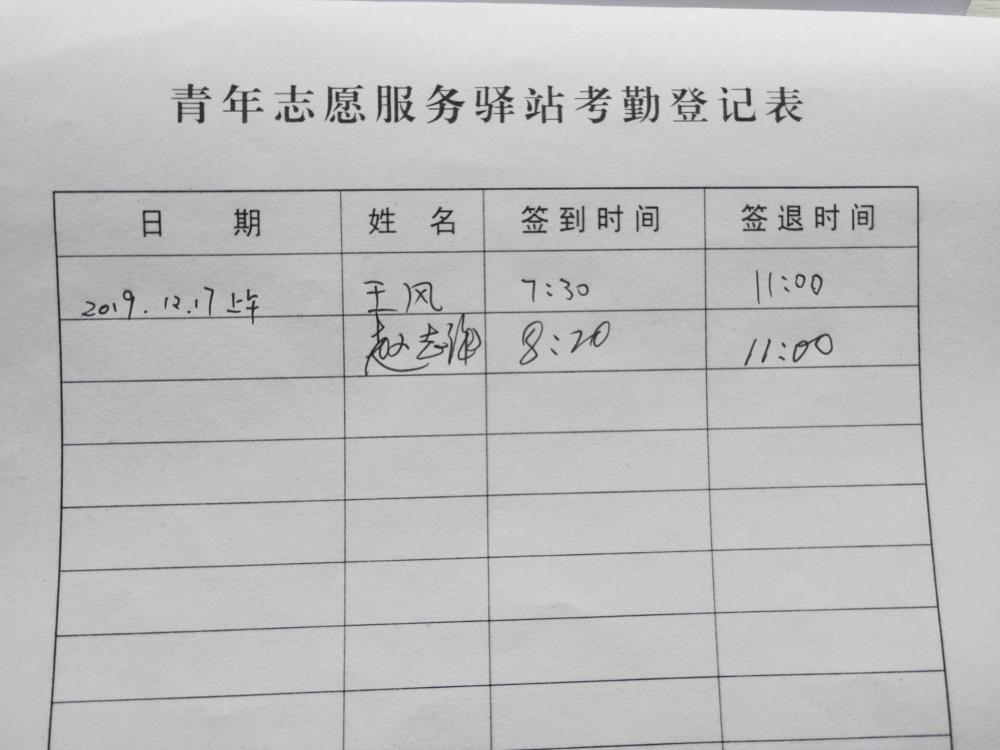 青年志愿服务驿站考勤登记表
日 期 姓 名 签到时间 签退时间
2019.12.17上午 王风 7:30 11:00
赵志 8:20 11:00